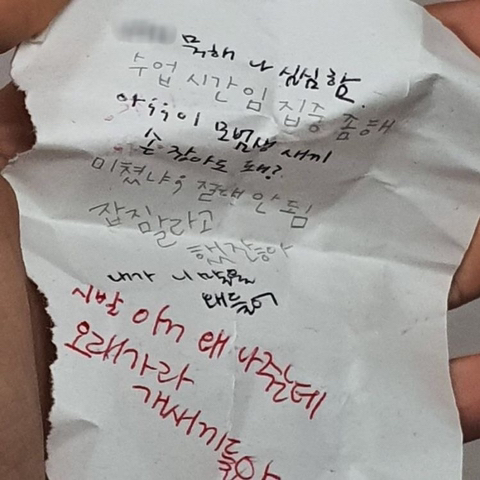 뭐해 나 심심함.
수업 시간임 집중 좀해
아ㅋㅋ 이 모범생 새끼
손 잡아도 돼?
미쳤냐ㅋ 절대 안 됨
잡지말라고
했잖아
내가 니 말을
왜들어
시발 이거 왜 나줬는데
오래가라
개새끼들아